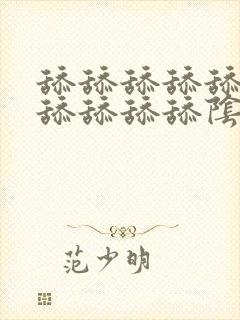 舔舔舔舔舔
舔舔舔舔陰
范少明